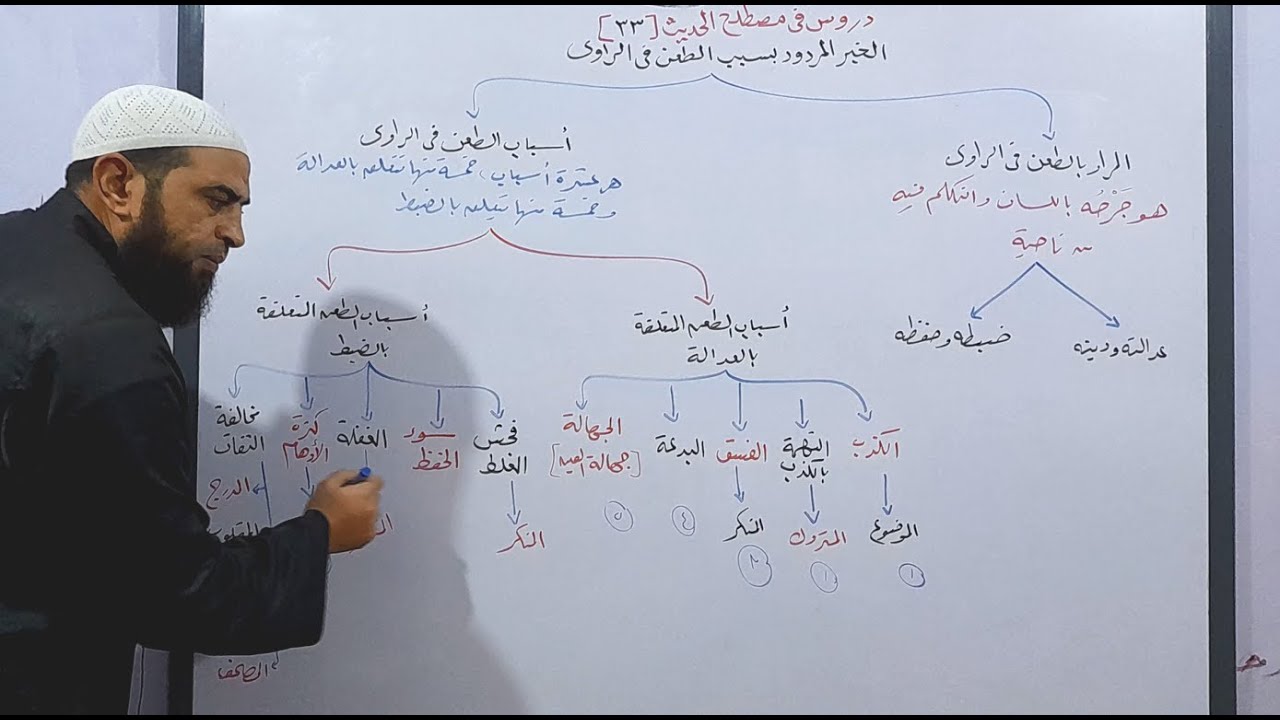 دروس في مصطلح الحديث [٣٣]
الخبر المردود بسبب الطعن في الراوي
المراد بالطعن في الراوي
هو جَرْحُه باللسان والتكلم فيه
من ناحية
عدالته ودينه
ضبطه وحفظه
أسباب الطعن في الراوي
هي عشرة أسباب، خمسة منها تتعلق بالعدالة
وخمسة منها تتعلق بالضبط
أسباب الطعن المتعلقة
بالعدالة
الكذب
الموضوع
١
التهمة
بالكذب
المتروك
الفسق
المنكر
البدعة
٤
الجهالة
[جهالة العين]
٥
أسباب الطعن المتعلقة
بالضبط
فحش
الغلط
المنكر
سوء
الحفظ
الغفلة
كثرة
الأوهام
مخالفة
الثقات
المدرج
المقلوب
المصحف